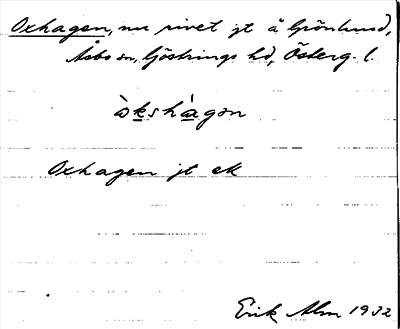 Oxhagen, nu rivet jt å Grönlund,
Åsbo sn, Göstrings hd, Österg. l.
òkshàgən
Oxhagen jt ek
Erik Alm 1932